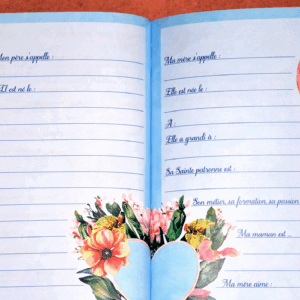 Mon père s'appelle :
Il est né le :
Ma mère s'appelle :
Elle est née le :
À :
Elle a grandi à :
Sa Sainte patronne est :
Son métier, sa formation, sa passion
Ma maman est...
Ma mère aime :